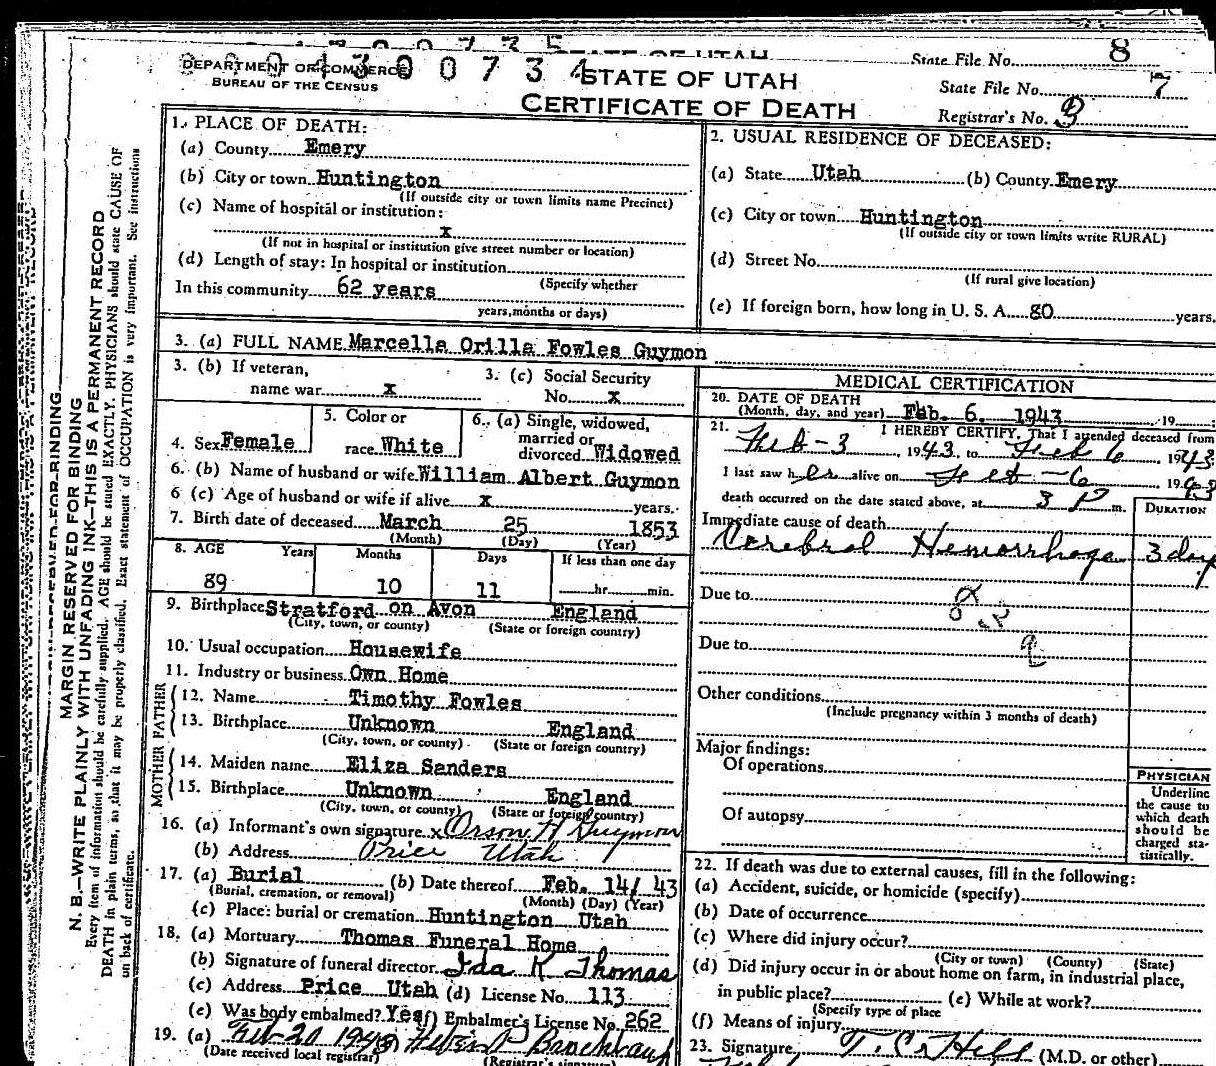 STATE OF UTAH
State File No. 8
DEPARTMENT OF COMMERCE
BUREAU OF THE CENSUS
STATE OF UTAH
CERTIFICATE OF DEATH
State File No. 7
Registrar's No. 3
MARGIN RESERVED FOR BINDING
N. B.—WRITE PLAINLY WITH UNFADING INK—THIS IS A PERMANENT RECORD
Every item of information should be carefully supplied. AGE should be stated EXACTLY. PHYSICIANS should state CAUSE OF
DEATH in plain terms, so that it may be properly classified. Exact statement of OCCUPATION is very important. See instructions
on back of certificate.
1. PLACE OF DEATH:
(a) County Emery
(b) City or town Huntington
(If outside city or town limits name Precinct)
(c) Name of hospital or institution:
x
(If not in hospital or institution give street number or location)
(d) Length of stay: In hospital or institution
(Specify whether
In this community 62 years
years, months or days)
2. USUAL RESIDENCE OF DECEASED:
(a) State Utah (b) County Emery
(c) City or town Huntington
(If outside city or town limits write RURAL)
(d) Street No.
(If rural give location)
(e) If foreign born, how long in U. S. A. 80 years.
3. (a) FULL NAME Marcella Orilla Fowles Guymon
3. (b) If veteran,
name war x
3. (c) Social Security
No. x
4. Sex Female
5. Color or
race White
6. (a) Single, widowed,
married or
divorced Widowed
6. (b) Name of husband or wife William Albert Guymon
6 (c) Age of husband or wife if alive x years.
7. Birth date of deceased March 25 1853
(Month) (Day) (Year)
8. AGE Years Months Days If less than one day
89 10 11 hr. min.
9. Birthplace Stratford on Avon England
(City, town, or county) (State or foreign country)
10. Usual occupation Housewife
11. Industry or business Own Home
FATHER
12. Name Timothy Fowles
13. Birthplace Unknown England
(City, town, or county) (State or foreign country)
MOTHER
14. Maiden name Eliza Sanders
15. Birthplace Unknown England
(City, town, or county) (State or foreign country)
16. (a) Informant's own signature x Orson H Guymon
(b) Address Price Utah
17. (a) Burial (b) Date thereof Feb. 14/ 43
(Burial, cremation, or removal) (Month) (Day) (Year)
(c) Place: burial or cremation Huntington Utah
18. (a) Mortuary Thomas Funeral Home
(b) Signature of funeral director Ida K Thomas
(c) Address Price Utah (d) License No. 113
(e) Was body embalmed? Yes (f) Embalmer's License No. 262
19. (a) Feb-20 1943
(Date received local registrar) (Registrar's signature)
MEDICAL CERTIFICATION
20. DATE OF DEATH
(Month, day, and year) Feb. 6, 1943 19
21. I HEREBY CERTIFY, That I attended deceased from
Feb-3 1943, to Feb 6 1943
I last saw her alive on Feb-6 1943
death occurred on the date stated above, at 3 P m.
DURATION
Immediate cause of death
Cerebral Hemorrhage 3 days
Due to
Due to
Other conditions
(Include pregnancy within 3 months of death)
Major findings:
Of operations
Of autopsy
PHYSICIAN
Underline
the cause to
which death
should be
charged sta-
tistically.
22. If death was due to external causes, fill in the following:
(a) Accident, suicide, or homicide (specify)
(b) Date of occurrence
(c) Where did injury occur?
(City or town) (County) (State)
(d) Did injury occur in or about home on farm, in industrial place,
in public place? (e) While at work?
(Specify type of place
(f) Means of injury
23. Signature T. C. Hill (M.D. or other)